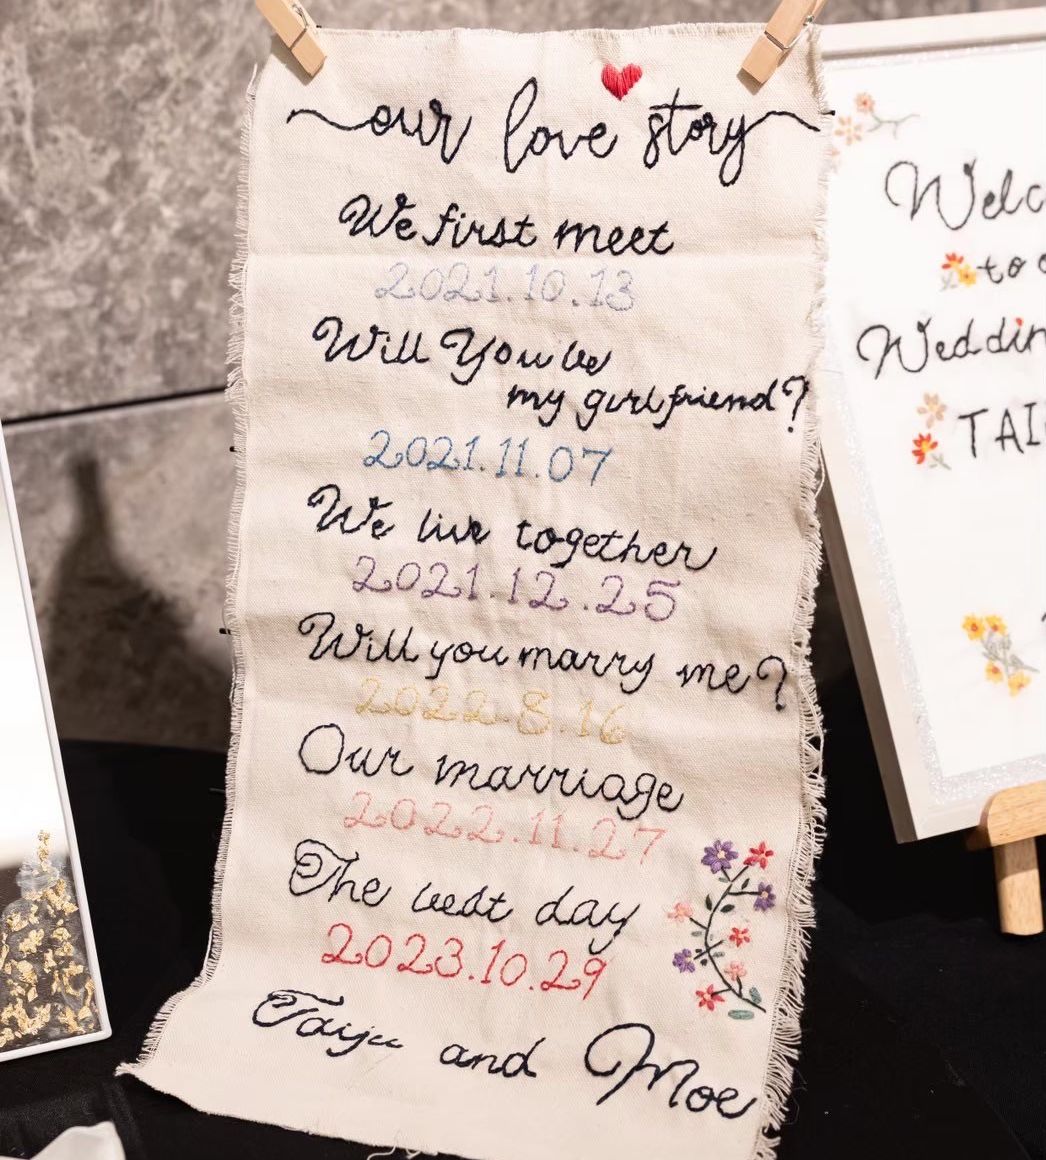 our love story
We first meet
2021.10.13
Will You be
my girlfriend?
2021.11.07
We live together
2021.12.25
Will you marry me?
2022.8.16
Our marriage
2022.11.27
The best day
2023.10.29
Taiju and Moe
Welc
to o
Weddin
TAI